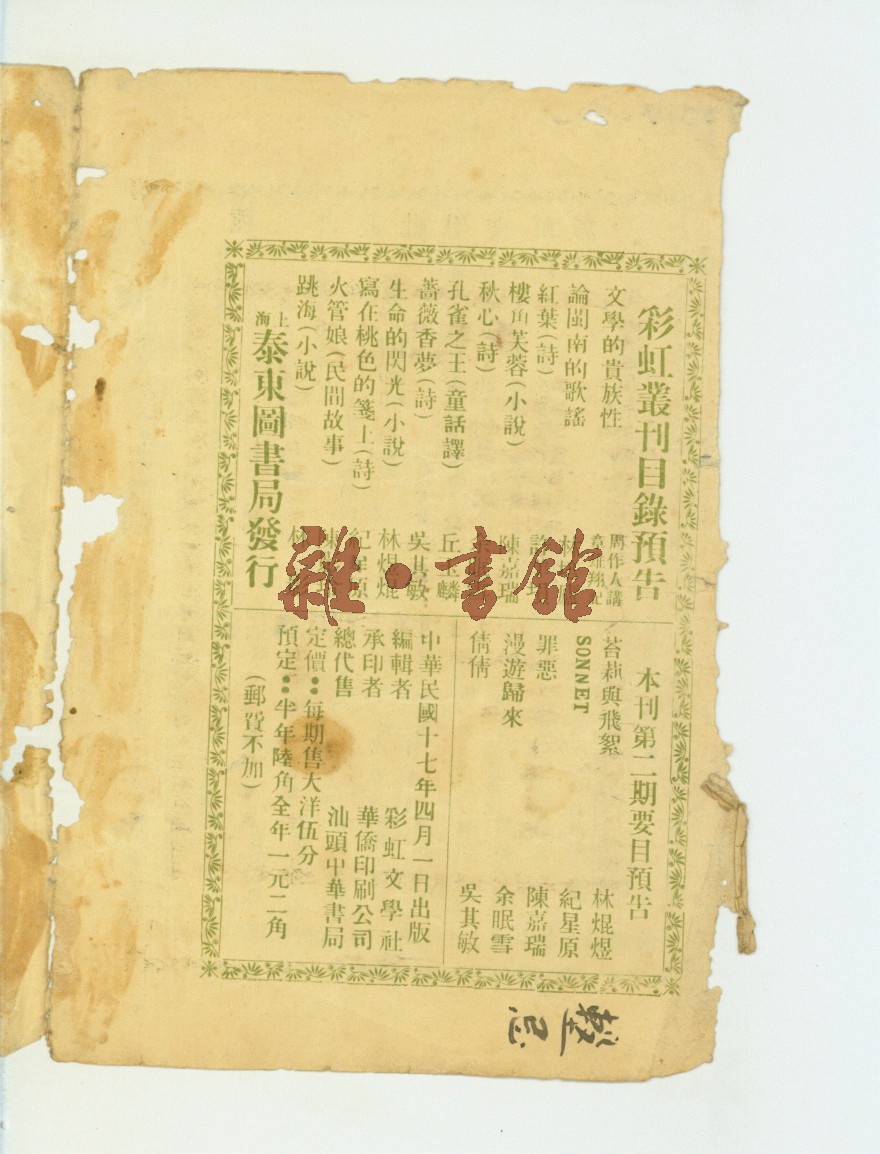 彩虹叢刊目錄預告
文學的貴族性 周作人講
論閩南的歌謠 林
紅葉(詩)
樓角芙蓉(小說) 陳嘉瑞
秋心(詩)
孔雀之王(童話譯) 丘玉麟
薔薇香夢(詩) 吳其敏
生命的閃光(小說) 林焜焜
寫在桃色的箋上(詩) 紀星原
火管娘(民間故事) 陳
跳海(小說) 林
上海泰東圖書局發行
本刊第二期要目預告
苔菻與飛絮 林焜煜
SONNET 紀星原
罪惡 陳嘉瑞
漫遊歸來 余眠雪
倩倩 吳其敏
中華民國十七年四月一日出版
編輯者 彩虹文學社
承印者 華僑印刷公司
總代售 汕頭中華書局
定價:每期售大洋伍分
預定:半年陸角全年一元二角
(郵費不加)
雜·書館